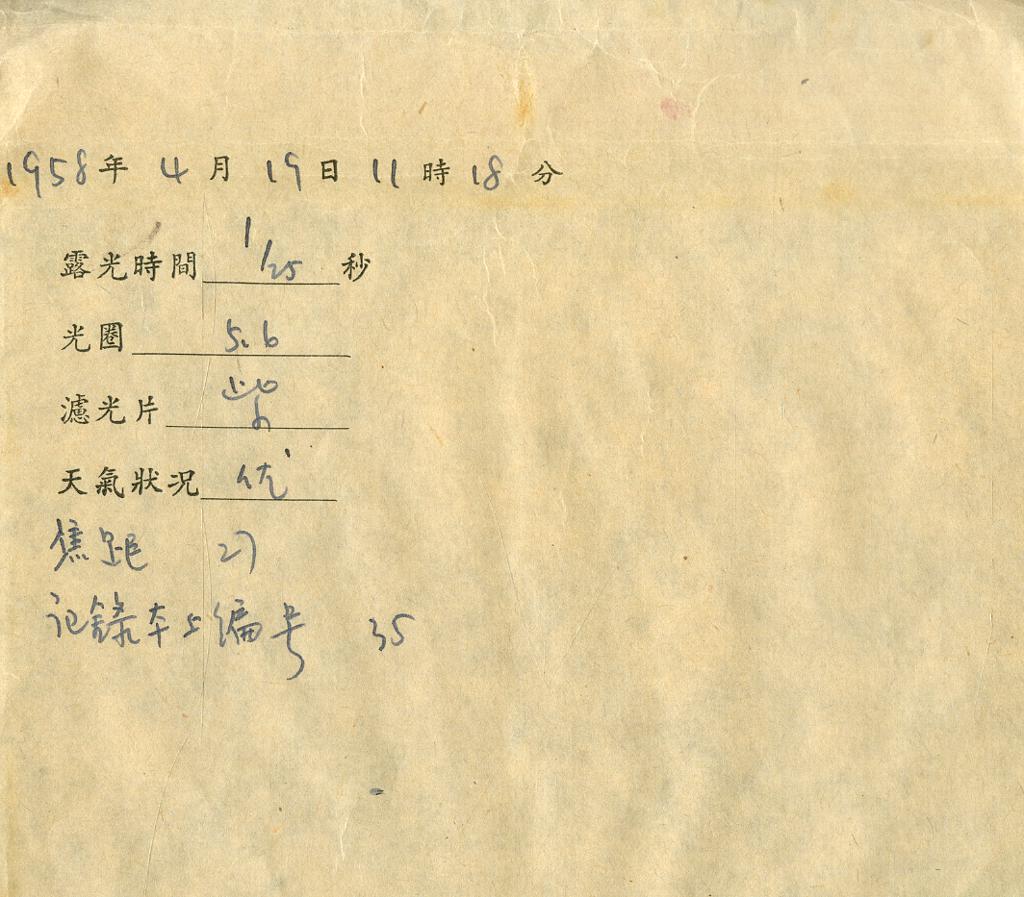 1958年 4月 19日 11時 18分
露光時間 1/25 秒
光圈 5.6
濾光片
天氣狀況 优
焦距 27
记録本上编号 35